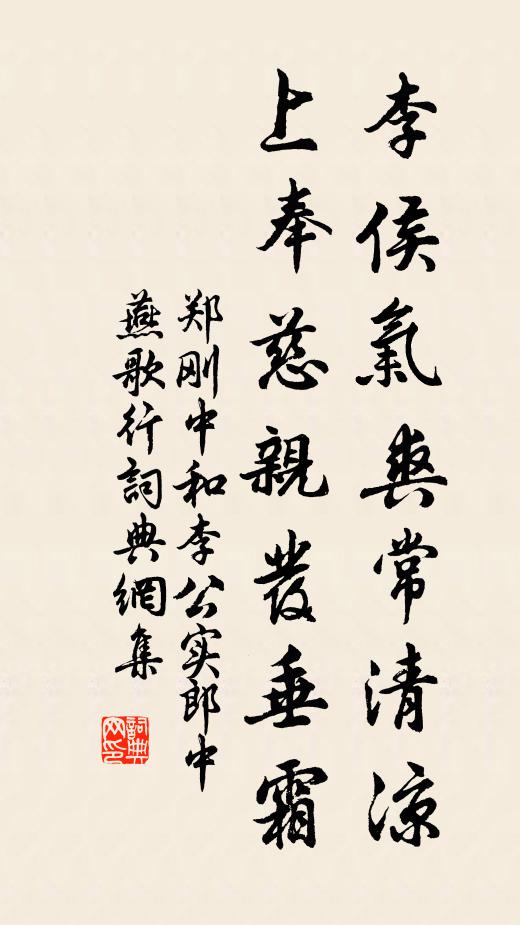 李侯氣爽常清涼
上奉慈親發垂霜
郑刚中和李公实郎中
燕歌行詞典網集
詞典
网印